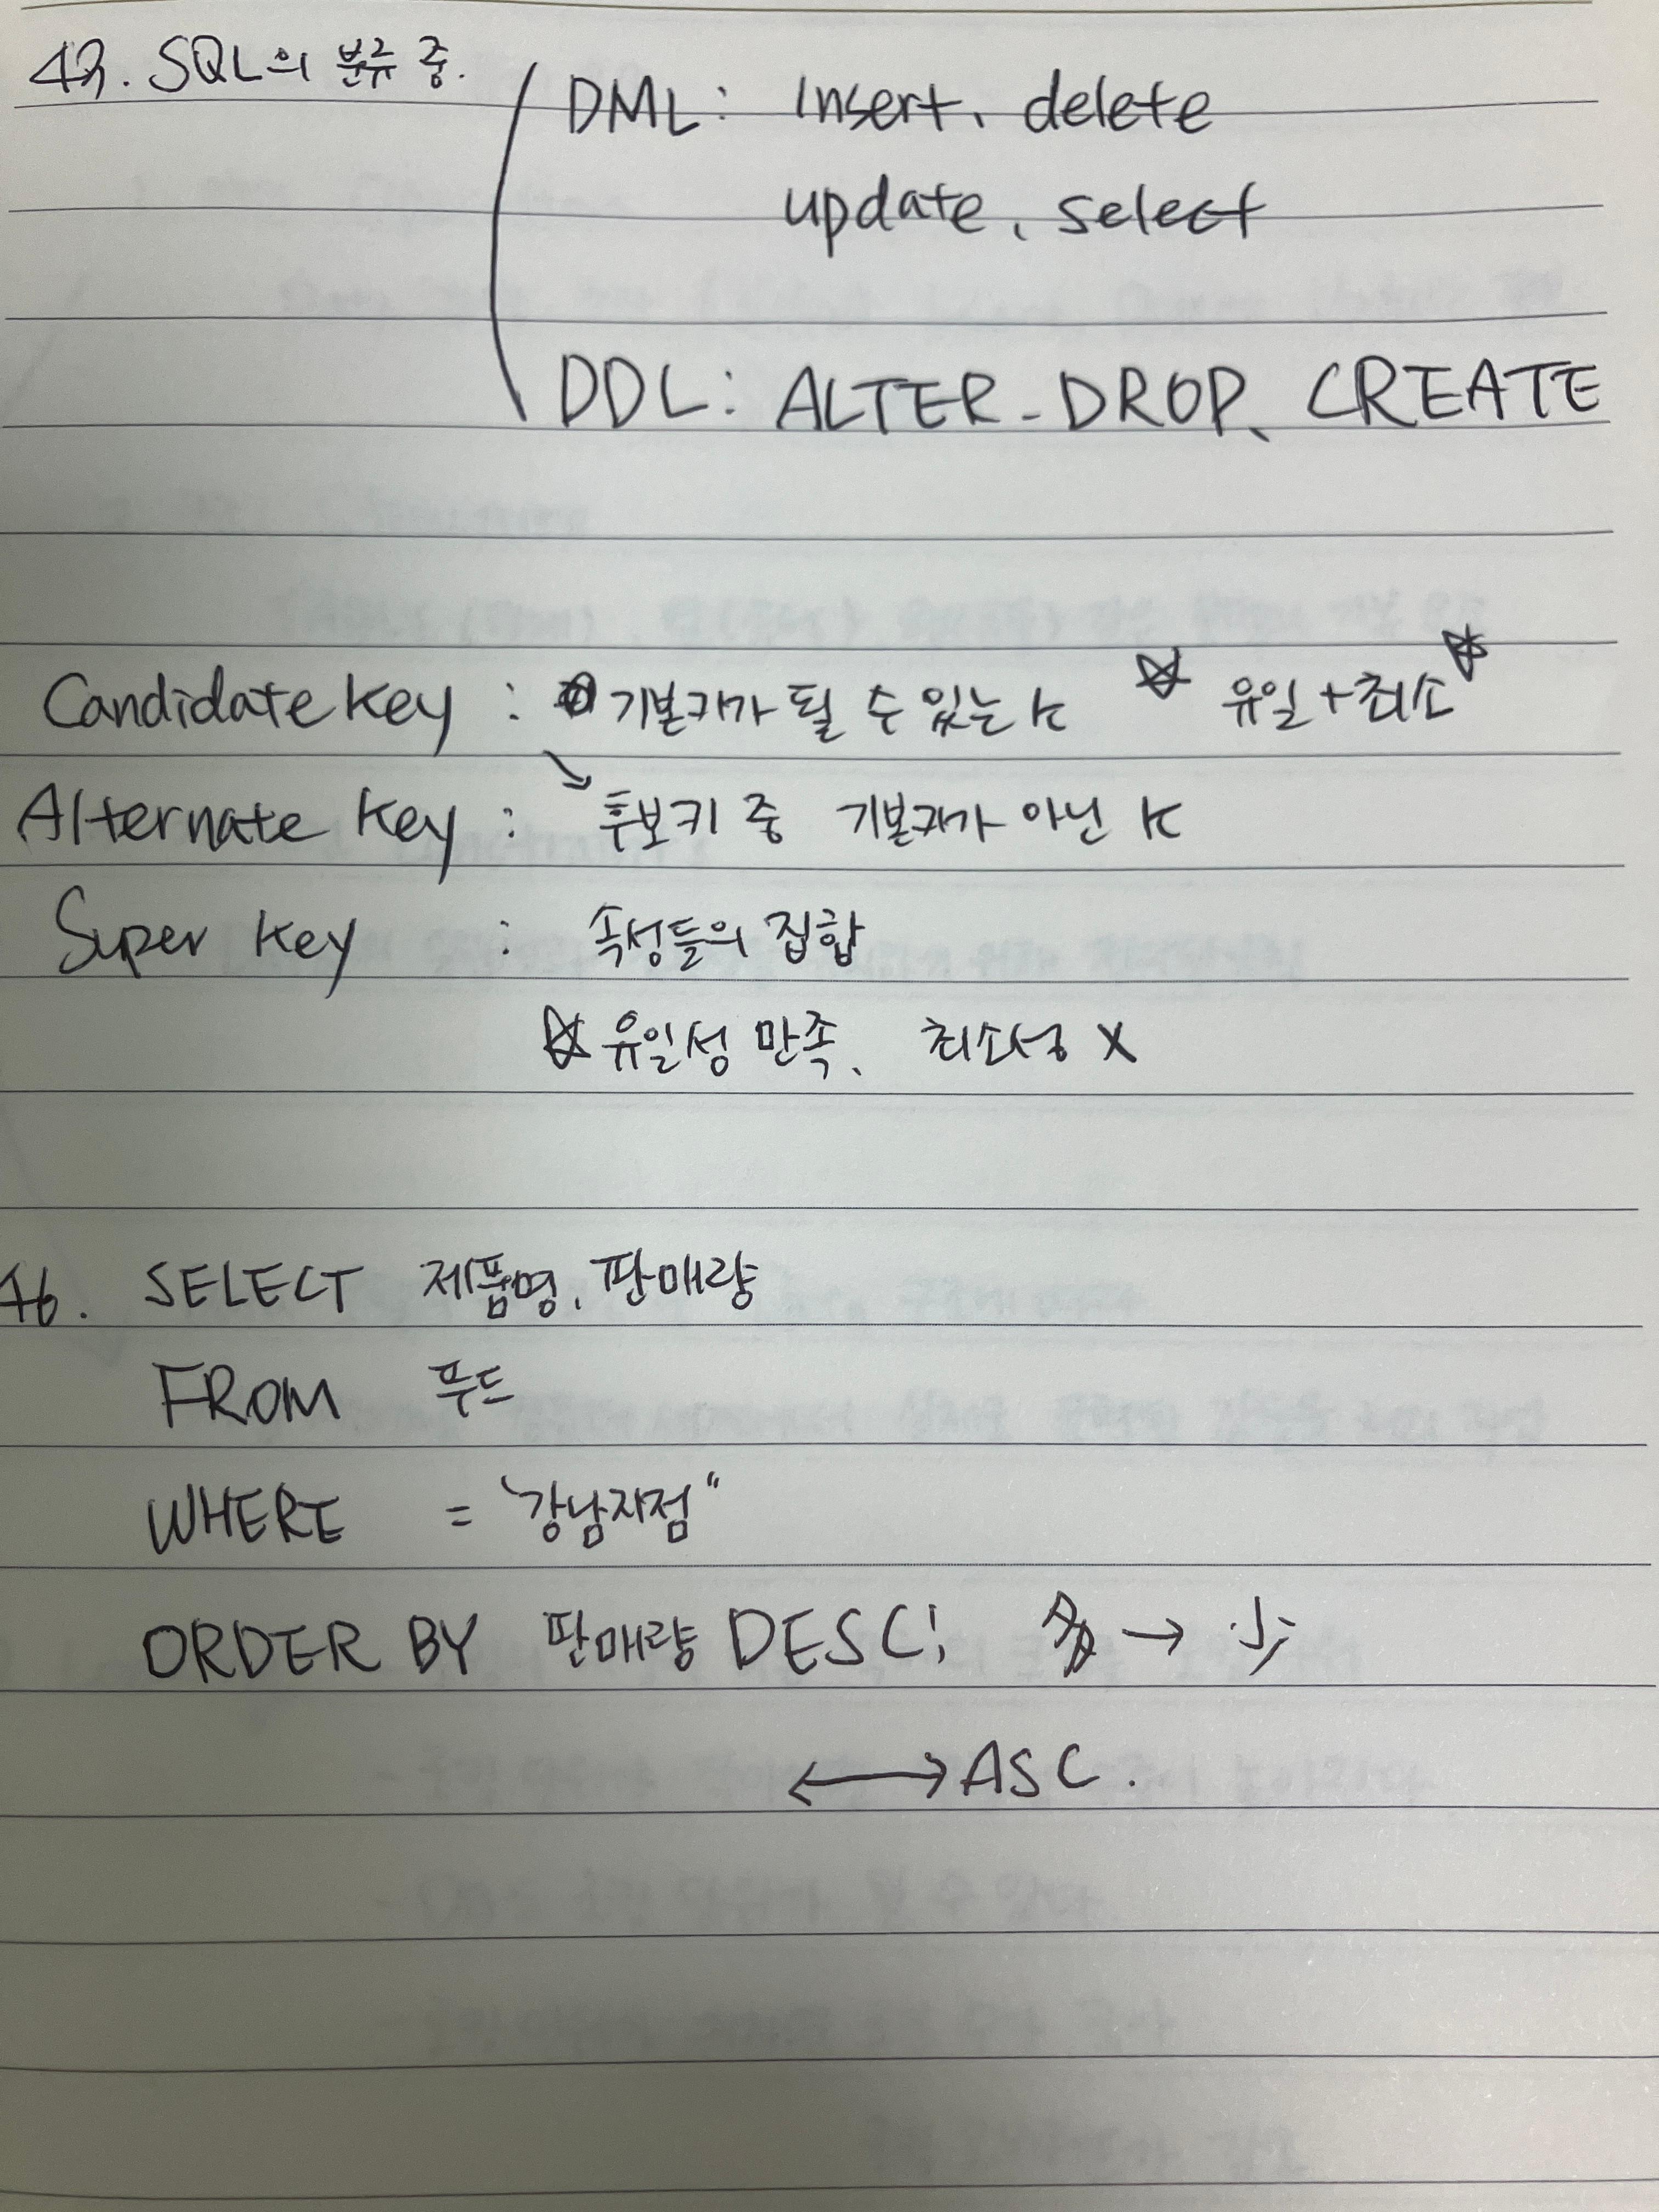 43. SQL의 분류 중.
DML: Insert, delete
update, select
DDL: ALTER, DROP, CREATE
Candidate key : 기본키가 될 수 있는 K ☆ 유일+최소☆
Alternate key : → 후보키 중 기본키가 아닌 K
Super key : 속성들의 집합
☆ 유일성 만족, 최소성 X
46. SELECT 제품명, 판매량
FROM 푸드
WHERE = "강남지점"
ORDER BY 판매량 DESC; 多 → 少
↔ ASC.